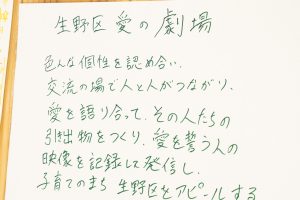 生野区 愛の劇場
色んな個性を認め合い、
交流の場で人と人がつながり、
愛を語り合って、その人たちの
引出物をつくり、愛を誓う人の
映像を記録して発信し、
子育てのまち 生野区をアピールする